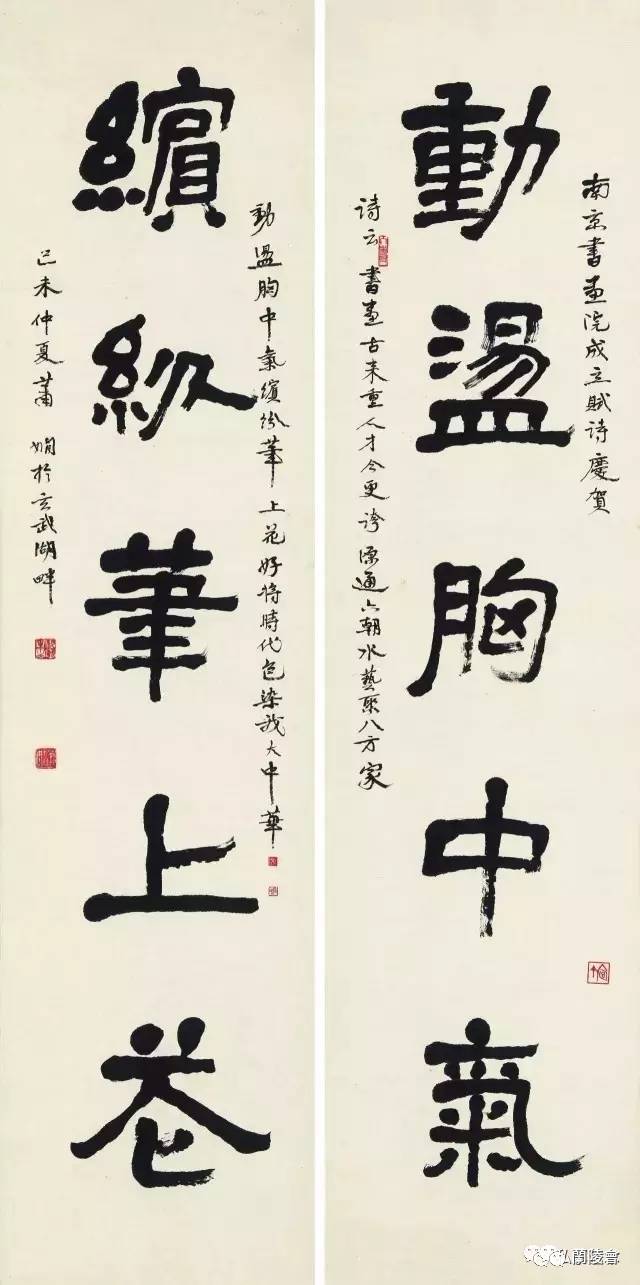 南京書畫院成立賦詩慶賀
動盪胸中氣
詩云書畫古来重人才今更誇源通六朝水藝聚八方家
動盪胸中氣繽紛筆上花好將時代色染我大中華
繽紛筆上花
己未仲夏蕭嫻於玄武湖畔
蘭陵會